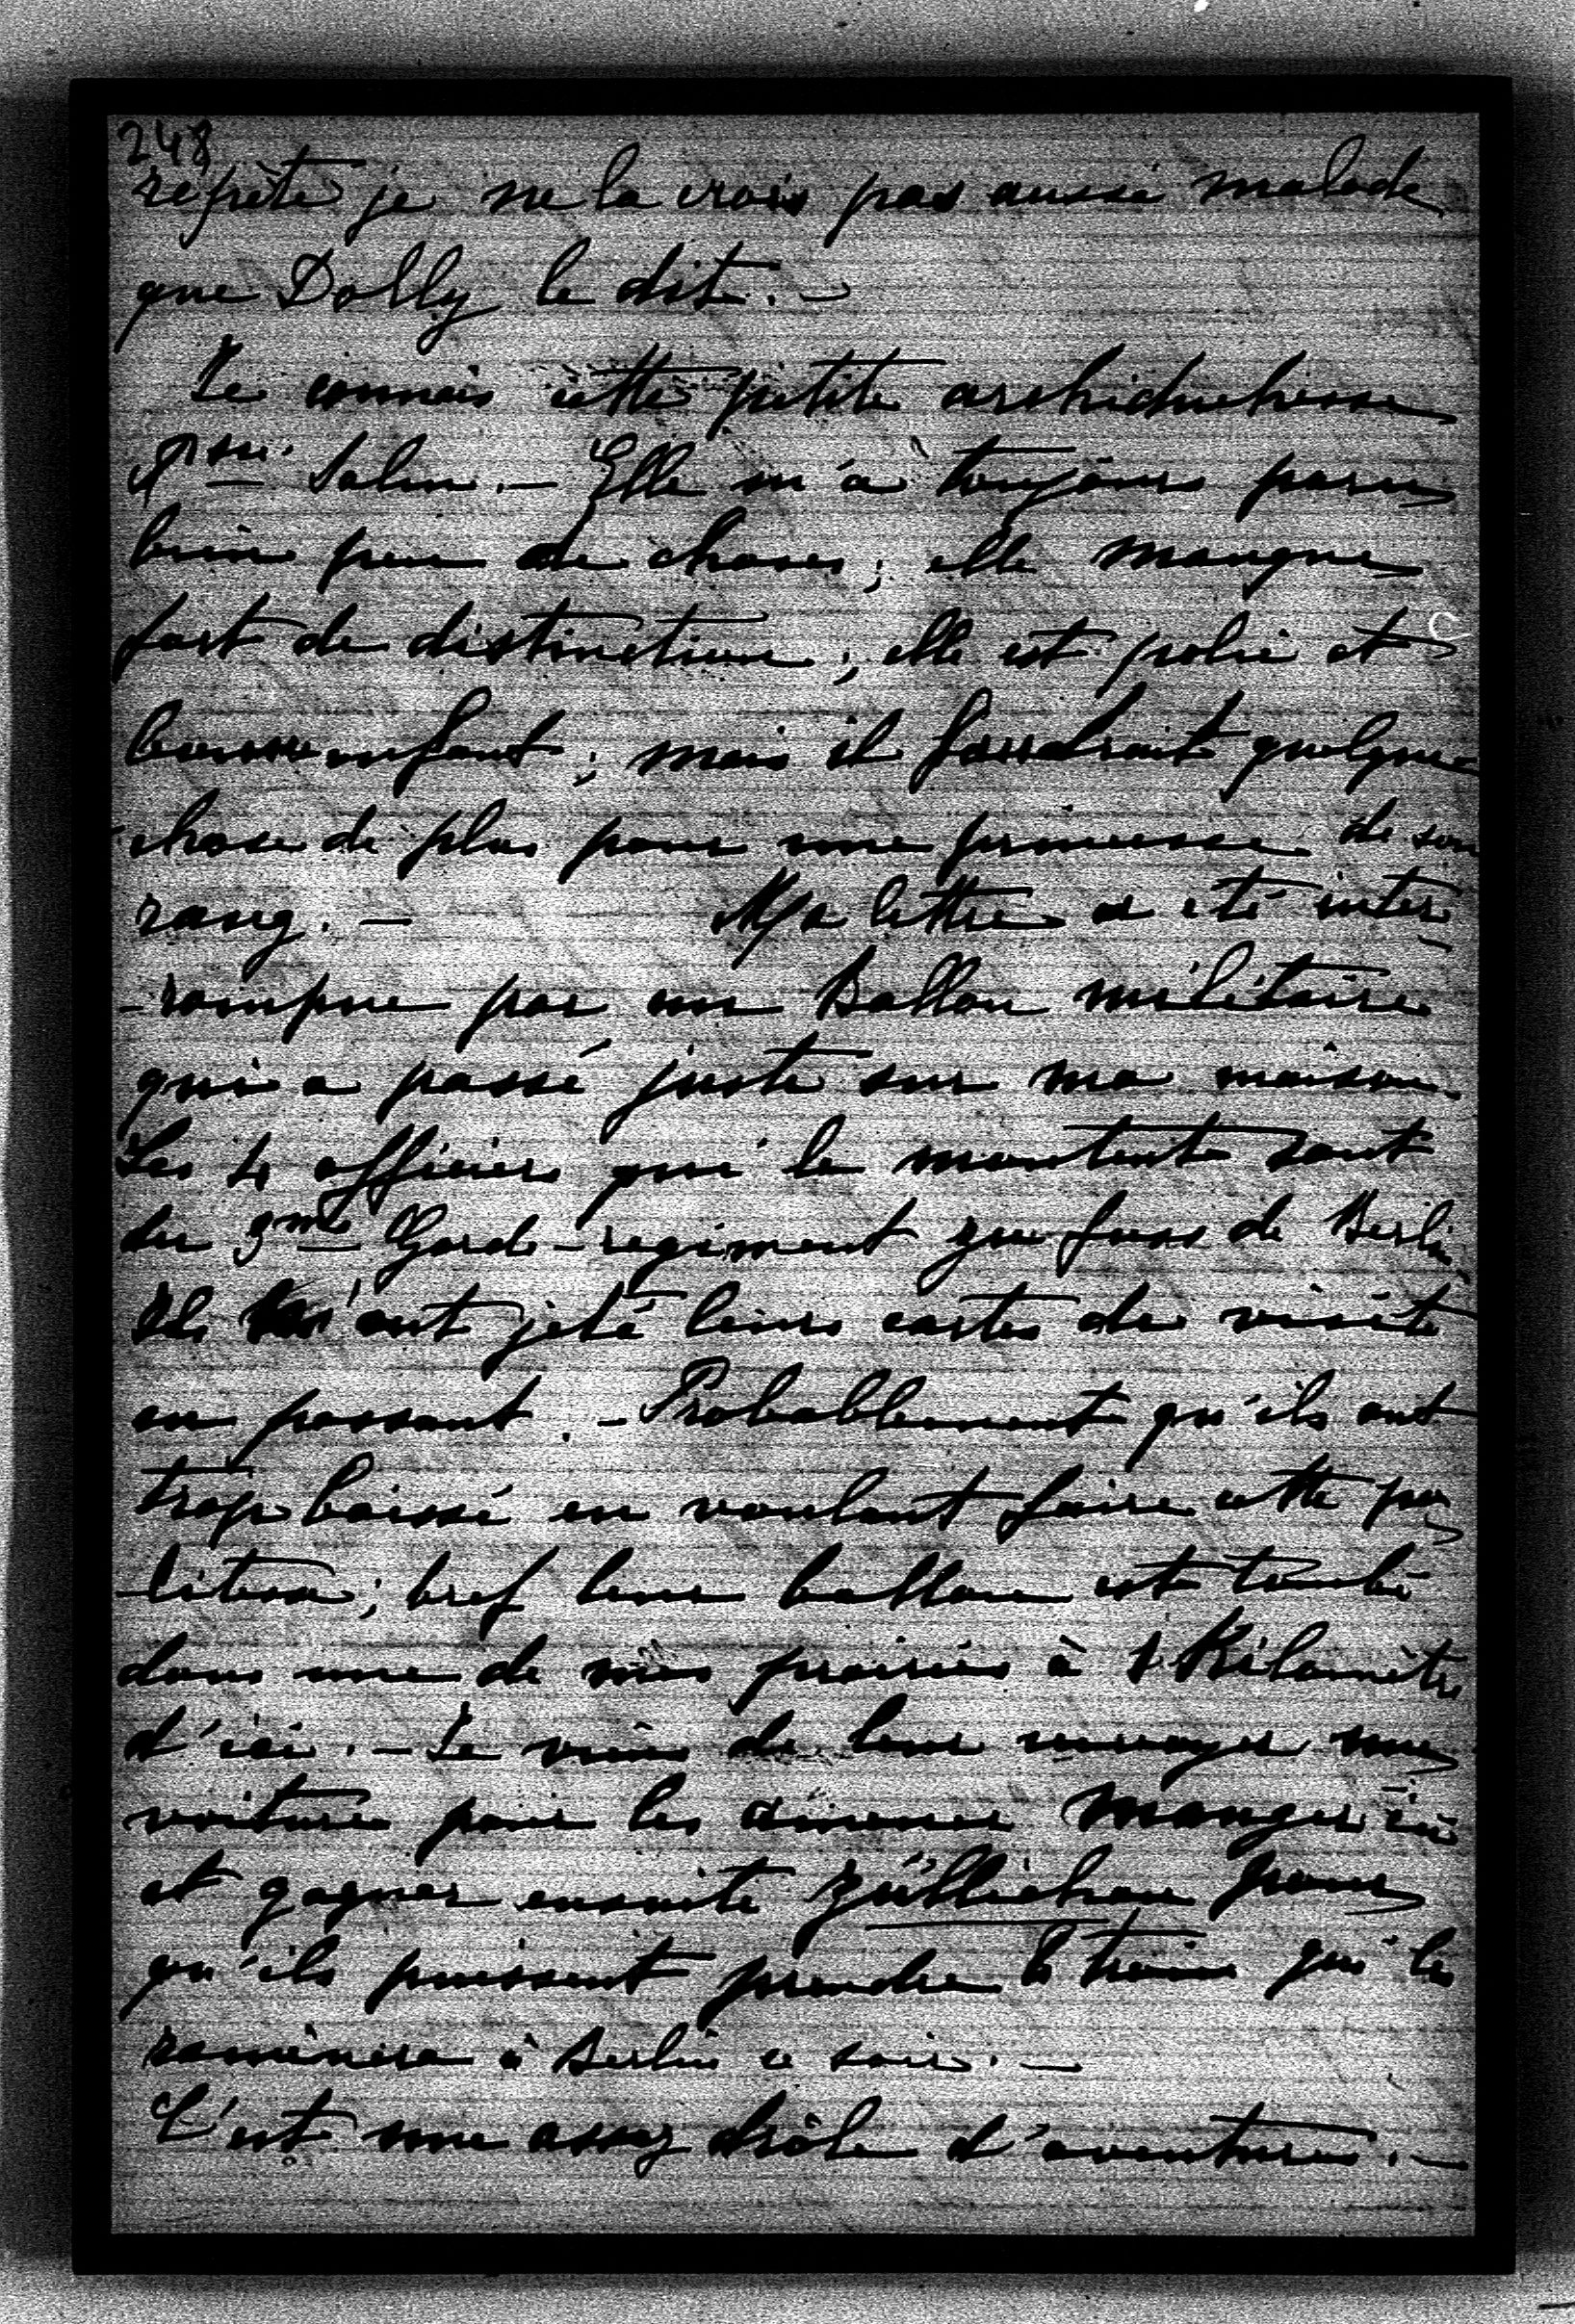 248
répète je ne la crois pas aussi malade
que Dolly le dit. —
Je connais cette petite archiduchesse
Psse. Salm. — Elle m'a toujours paru
bien peu de choses; elle manque
fort de distinction; elle est polie et
bonne enfant; mais il faudrait quelque
chose de plus pour une princesse de son
rang. — Ma lettre a été inter-
-rompue par un Ballon militaire
qui a passé juste sur ma maison.
Les 4 officiers qui le montent sont
du 3me Garde-regiment zu fuss de Berlin
Ils m'ont jeté leurs cartes de visite
en passant. — Probablement qu'ils ont
trop baissé en voulant faire cette po
-litesse; bref leur ballon est tombé
dans une de mes prairies à 1 Kilomètre
d'ici. — Je viens de leur envoyer une
voiture pour les amener manger ici
et gagner ensuite Züllichau pour
qu'ils puissent prendre le train qui les
ramènera à Berlin ce soir. —
C'est une assez drôle d'aventure. —